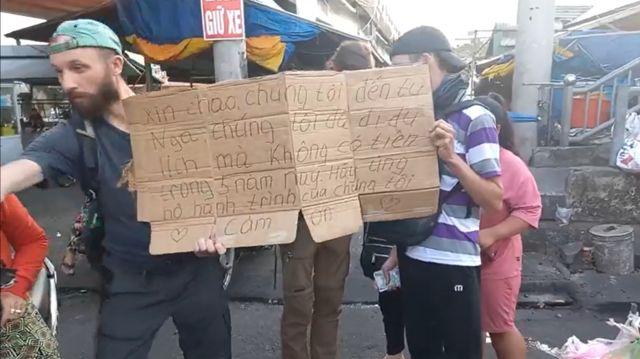 GIỮ XE
xin chào, chúng tôi đến từ
Nga chúng tôi đã đi du
lịch mà không có tiền
trong 5 năm nuy. Hãy ủng
hộ hành trình của chúng tôi
♡ Cảm ơn ♡